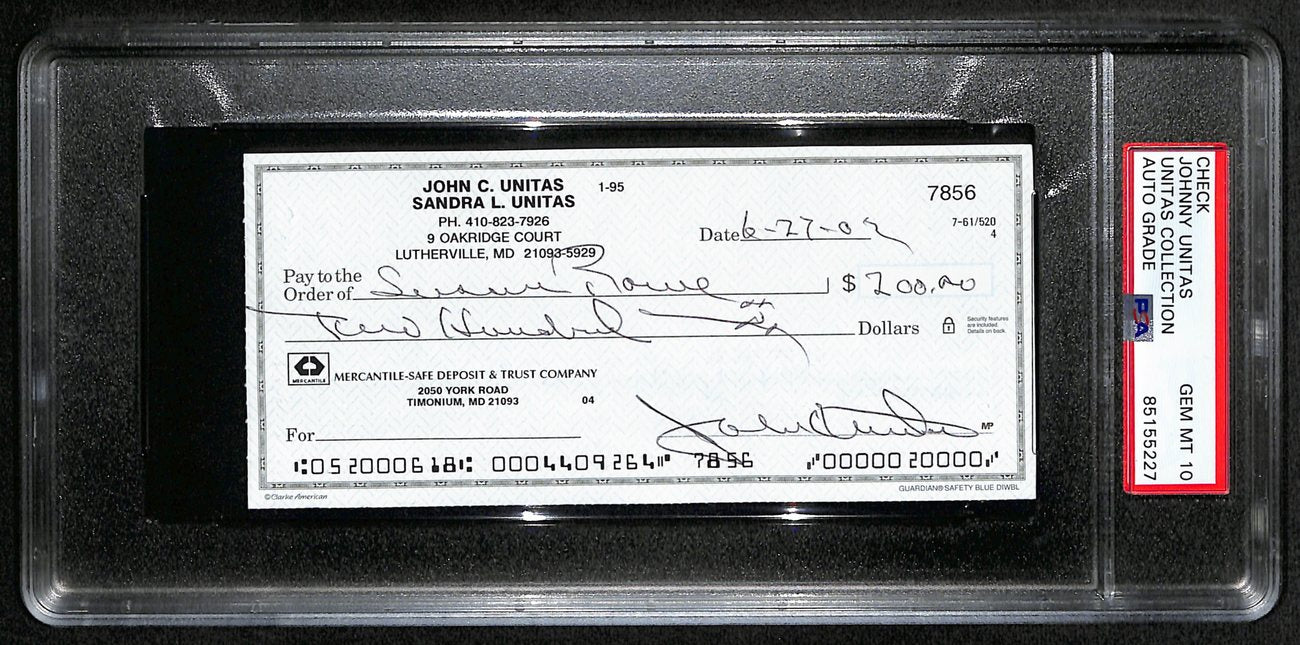 JOHN C. UNITAS 1-95
SANDRA L. UNITAS
PH. 410-823-7926
9 OAKRIDGE COURT
LUTHERVILLE, MD 21093-5929
7856
7-61/520
4
Date 6-27-02
Pay to the
Order of Susan Rowe $ 200.00
Two Hundred Dollars
Security features
are included.
Details on back.
MERCANTILE
MERCANTILE-SAFE DEPOSIT & TRUST COMPANY
2050 YORK ROAD
TIMONIUM, MD 21093 04
For
John Unitas MP
⑆052000618⑆ 0004409264⑈ 7856 ⑇0000020000⑇
©Clarke American
GUARDIAN® SAFETY BLUE DIWBL
CHECK
JOHNNY UNITAS
UNITAS COLLECTION GEM MT 10
AUTO GRADE 85155227
PSA